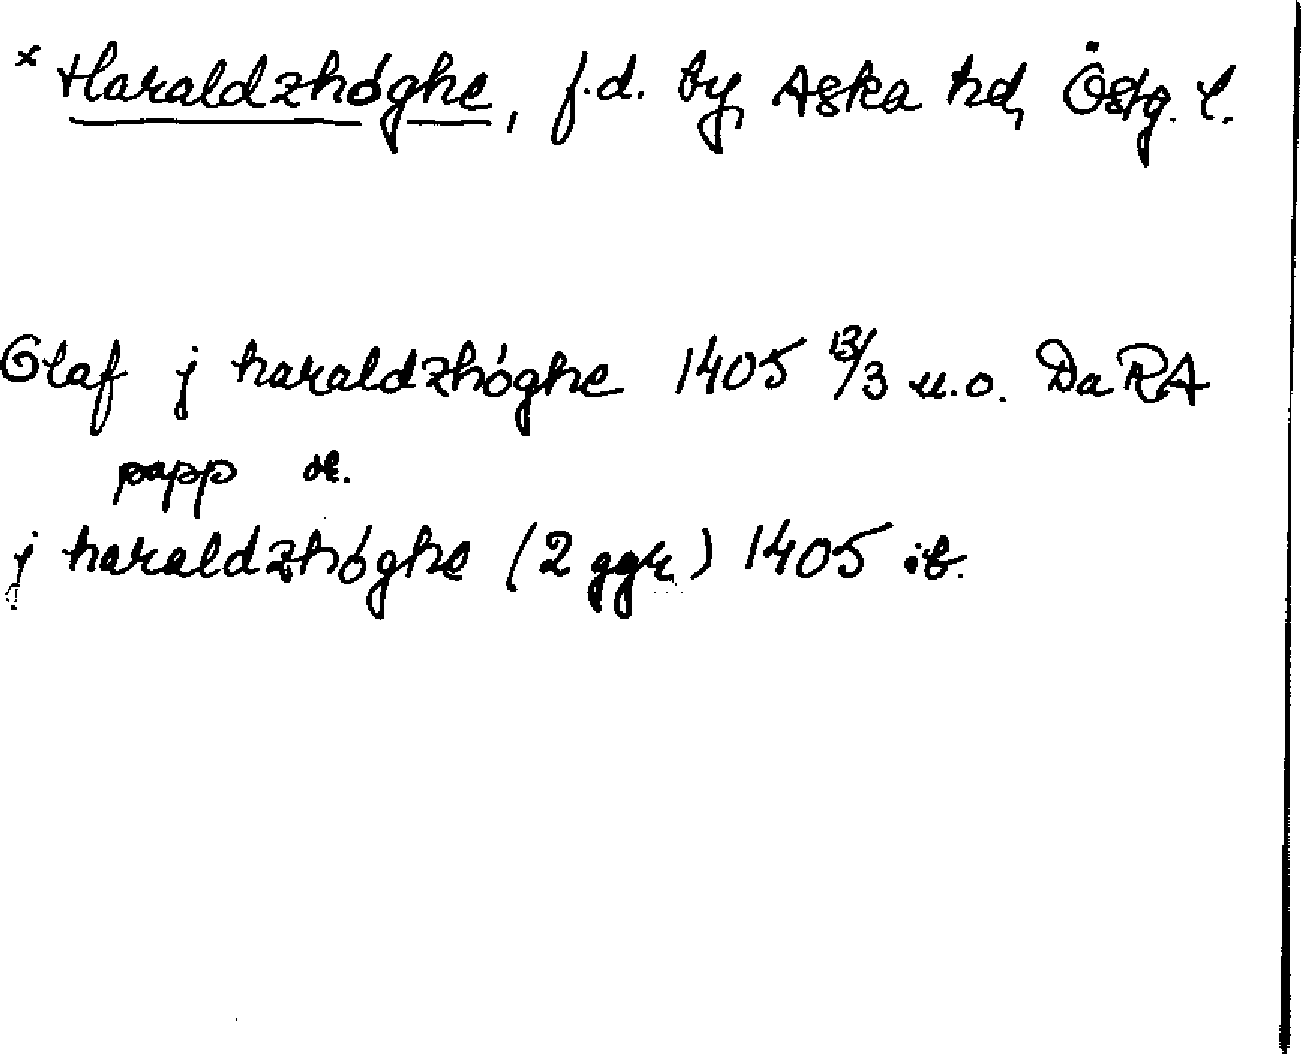 × Haraldzhóghe, f.d. by, Aska hd, Östg. l.
Olaf j haraldzhóghe 1405 13/3 u.o. DaRA
papp or.
j haraldzhóghe (2 ggr) 1405 ib.